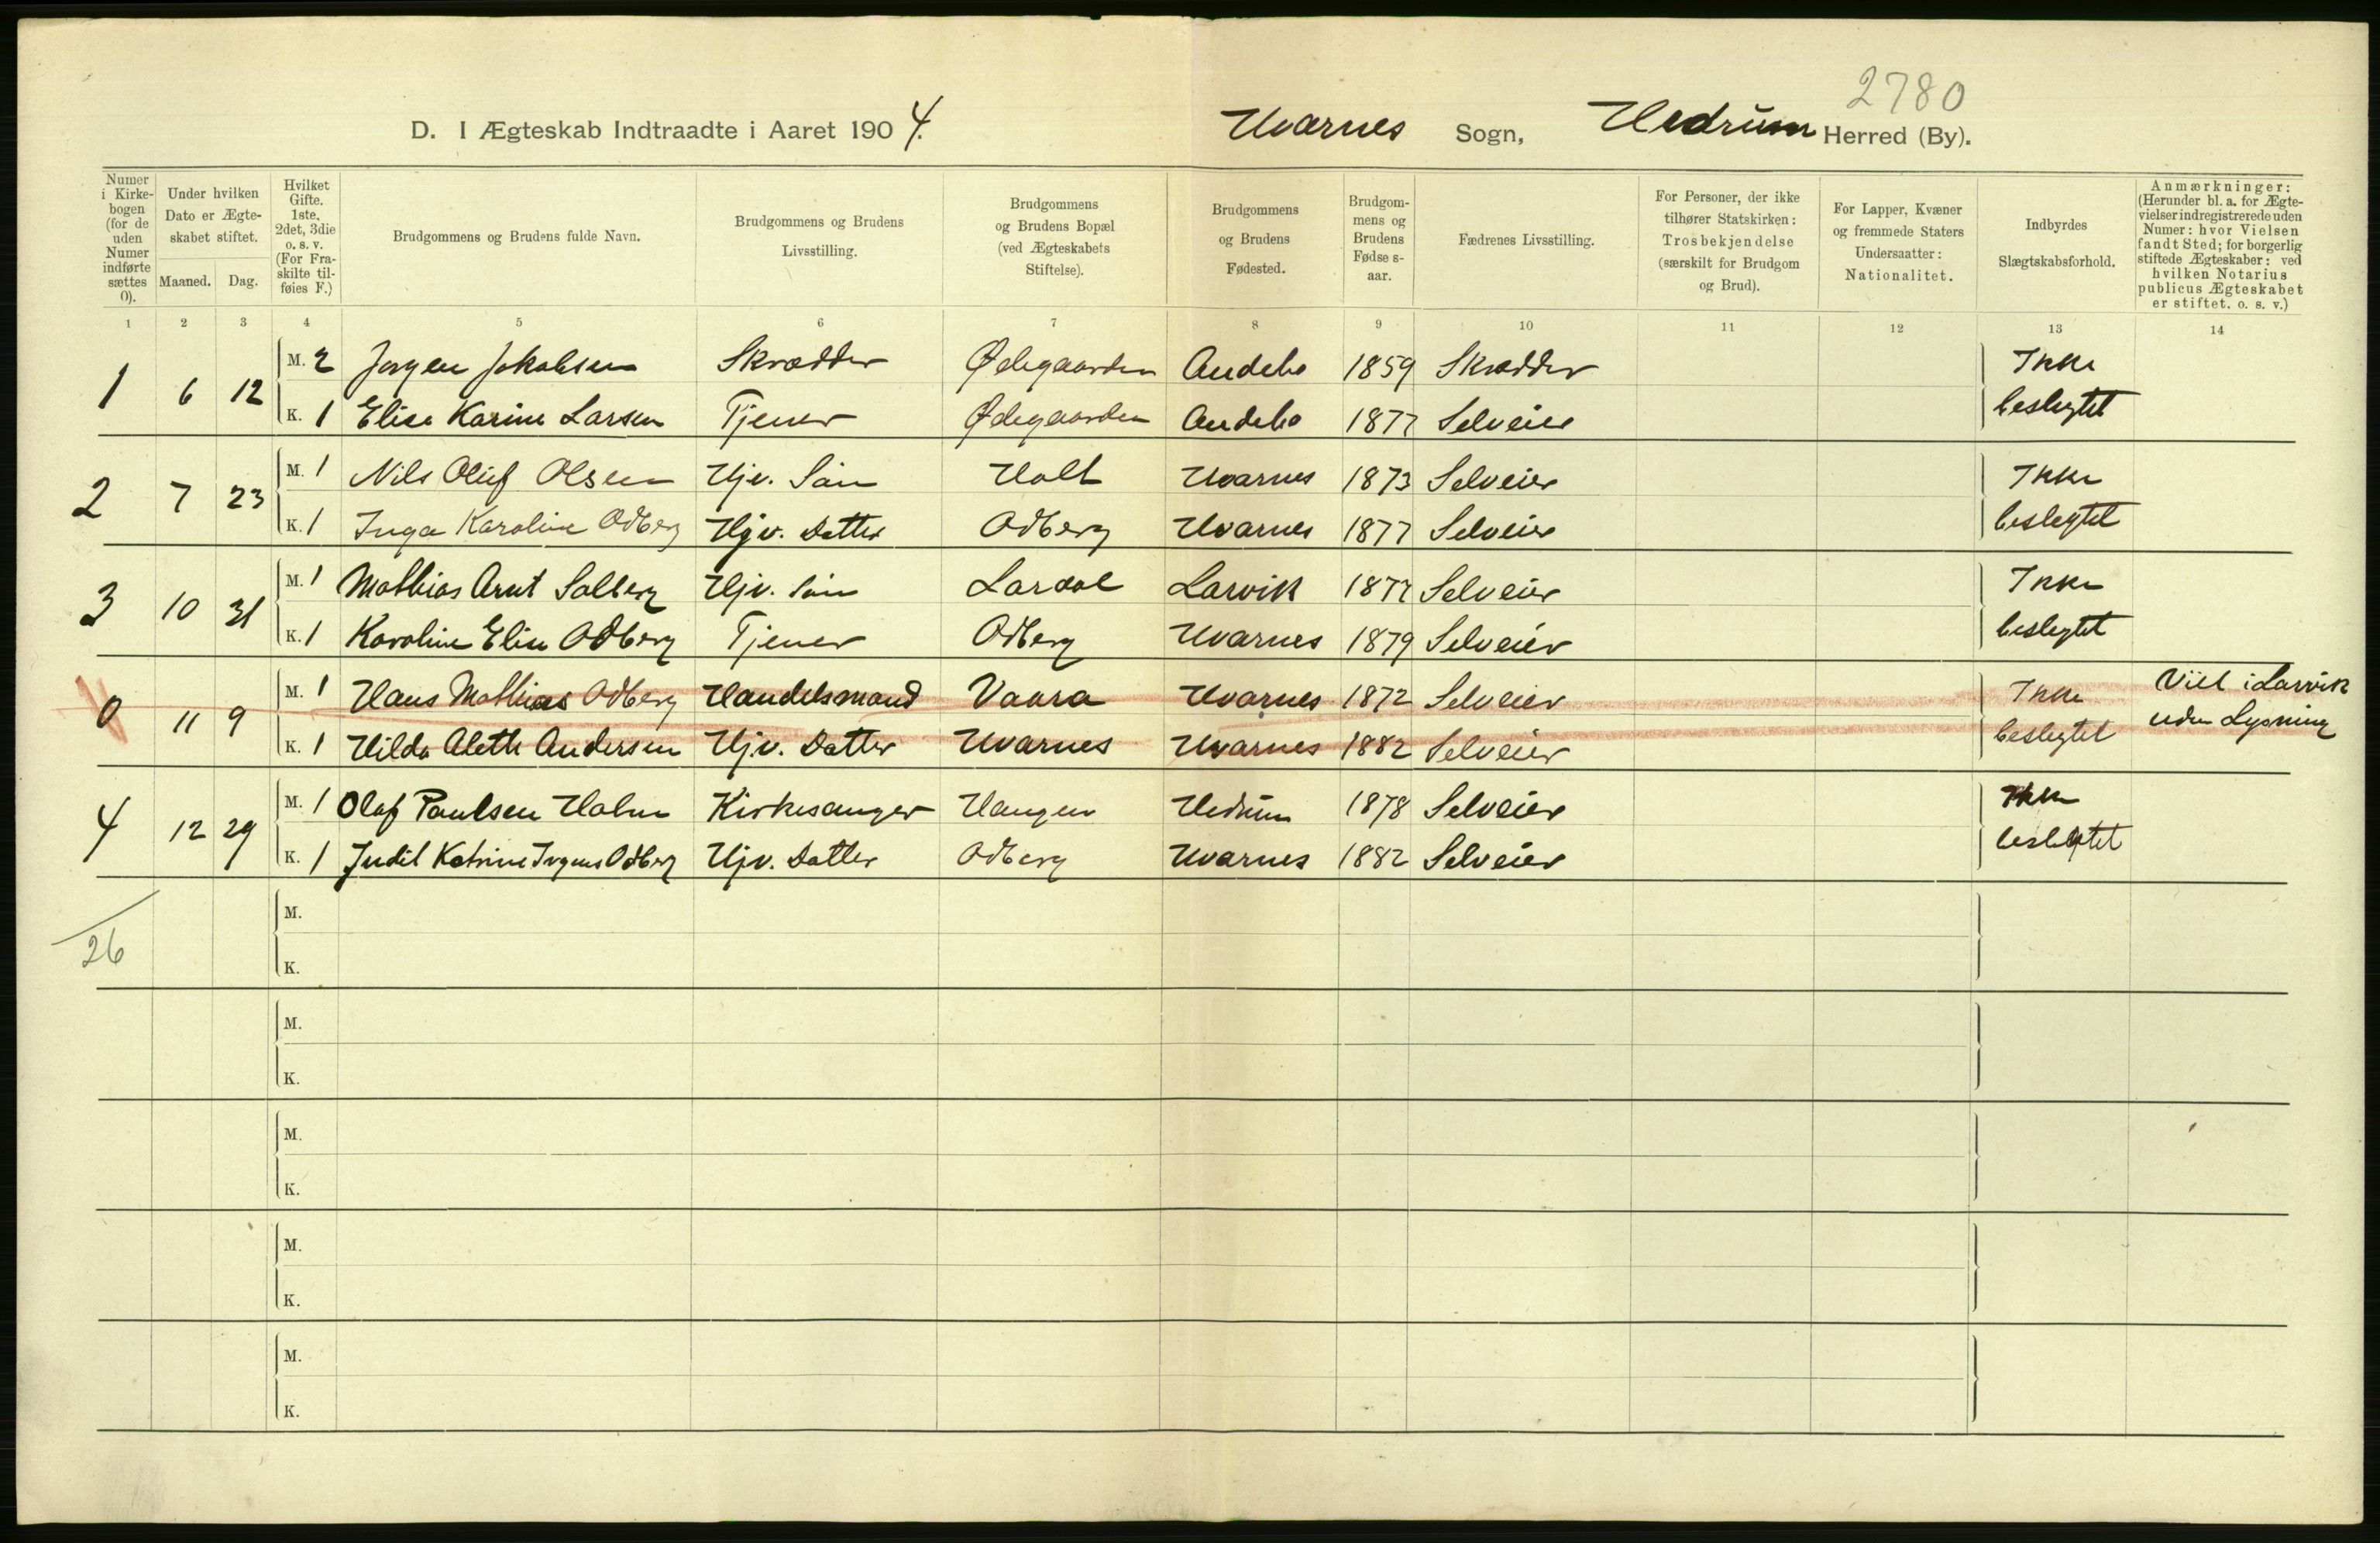 2780
D. I Ægteskab Indtraadte i Aaret 1904. Hvarnes Sogn, Hedrum Herred (By).
Numer i Kirkebogen (for de uden Numer indførte sættes 0).
Under hvilken Dato er Ægteskabet stiftet.
Maaned. Dag.
Hvilket Gifte. 1ste, 2det, 3die o. s. v. (For Fraskilte tilføies F.)
Brudgommens og Brudens fulde Navn.
Brudgommens og Brudens Livsstilling.
Brudgommens og Brudens Bopæl (ved Ægteskabets Stiftelse).
Brudgommens og Brudens Fødested.
Brudgommens og Brudens Fødse s-aar.
Fædrenes Livsstilling.
For Personer, der ikke tilhører Statskirken: Trosbekjendelse (særskilt for Brudgom og Brud).
For Lapper, Kvæner og fremmede Staters Undersaatter: Nationalitet.
Indbyrdes Slægtskabsforhold.
Anmærkninger: (Herunder bl. a. for Ægtevielser indregistrerede uden Numer: hvor Vielsen fandt Sted; for borgerlig stiftede Ægteskaber: ved hvilken Notarius publicus Ægteskabet er stiftet. o. s. v.)
1 2 3 4 5 6 7 8 9 10 11 12 13 14
1 6 12 M. 2 Jørgen Jakobsen Skrædder Ødegaarden Andebo 1859 Skrædder Ikke
K. 1 Elise Karine Larsen Tjener Ødegaarden Andebo 1877 Selveier beslegtet
2 7 23 M. 1 Nils Oluf Olsen Hjv. Søn Holt Hvarnes 1873 Selveier Ikke
K. 1 Inga Karoline Odberg Hjv. Datter Odberg Hvarnes 1877 Selveier beslegtet
3 10 31 M. 1 Mathias Arnt Solberg Hjv. Søn Lardal Larvik 1877 Selveier Ikke
K. 1 Karoline Elise Odberg Tjener Odberg Hvarnes 1879 Selveier beslegtet
0 11 9 M. 1 Hans Mathias Odberg Handelsmand Vaara Hvarnes 1872 Selveier Ikke Viet i Larvik
K. 1 Hilda Aleth Andersen Hjv. Datter Hvarnes Hvarnes 1882 Selveier beslegtet uden Lysning
4 12 29 M. 1 Olaf Paulsen Holm Kirkesanger Haugen Hedrum 1878 Selveier Ikke
K. 1 Judit Katrine Odberg Hjv. Datter Odberg Hvarnes 1882 Selveier beslegtet
26
M.
K.
M.
K.
M.
K.
M.
K.
M.
K.